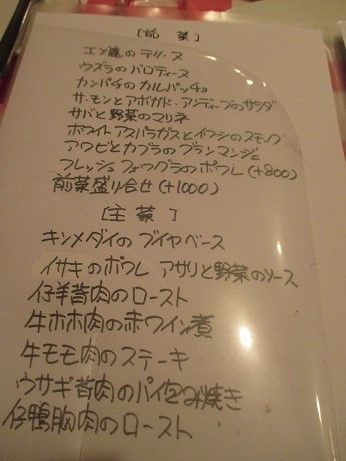 [前菜]
エゾ鹿のテリーヌ
ウズラのバロティーヌ
カンパチのカルパッチョ
サーモンとアボガド・アンディーブのサラダ
サバと野菜のマリネ
ホワイトアスパラガスとイワシのスモーク
アワビとカブラのブランマンジェ
フレッシュフォワグラのポワレ(+800)
前菜盛り合せ(+1000)
[主菜]
キンメダイのブイヤベース
イサキのポワレ アサリと野菜のソース
仔羊背肉のロースト
牛ホホ肉の赤ワイン煮
牛モモ肉のステーキ
ウサギ背肉のパイ包み焼き
仔鴨胸肉のロースト